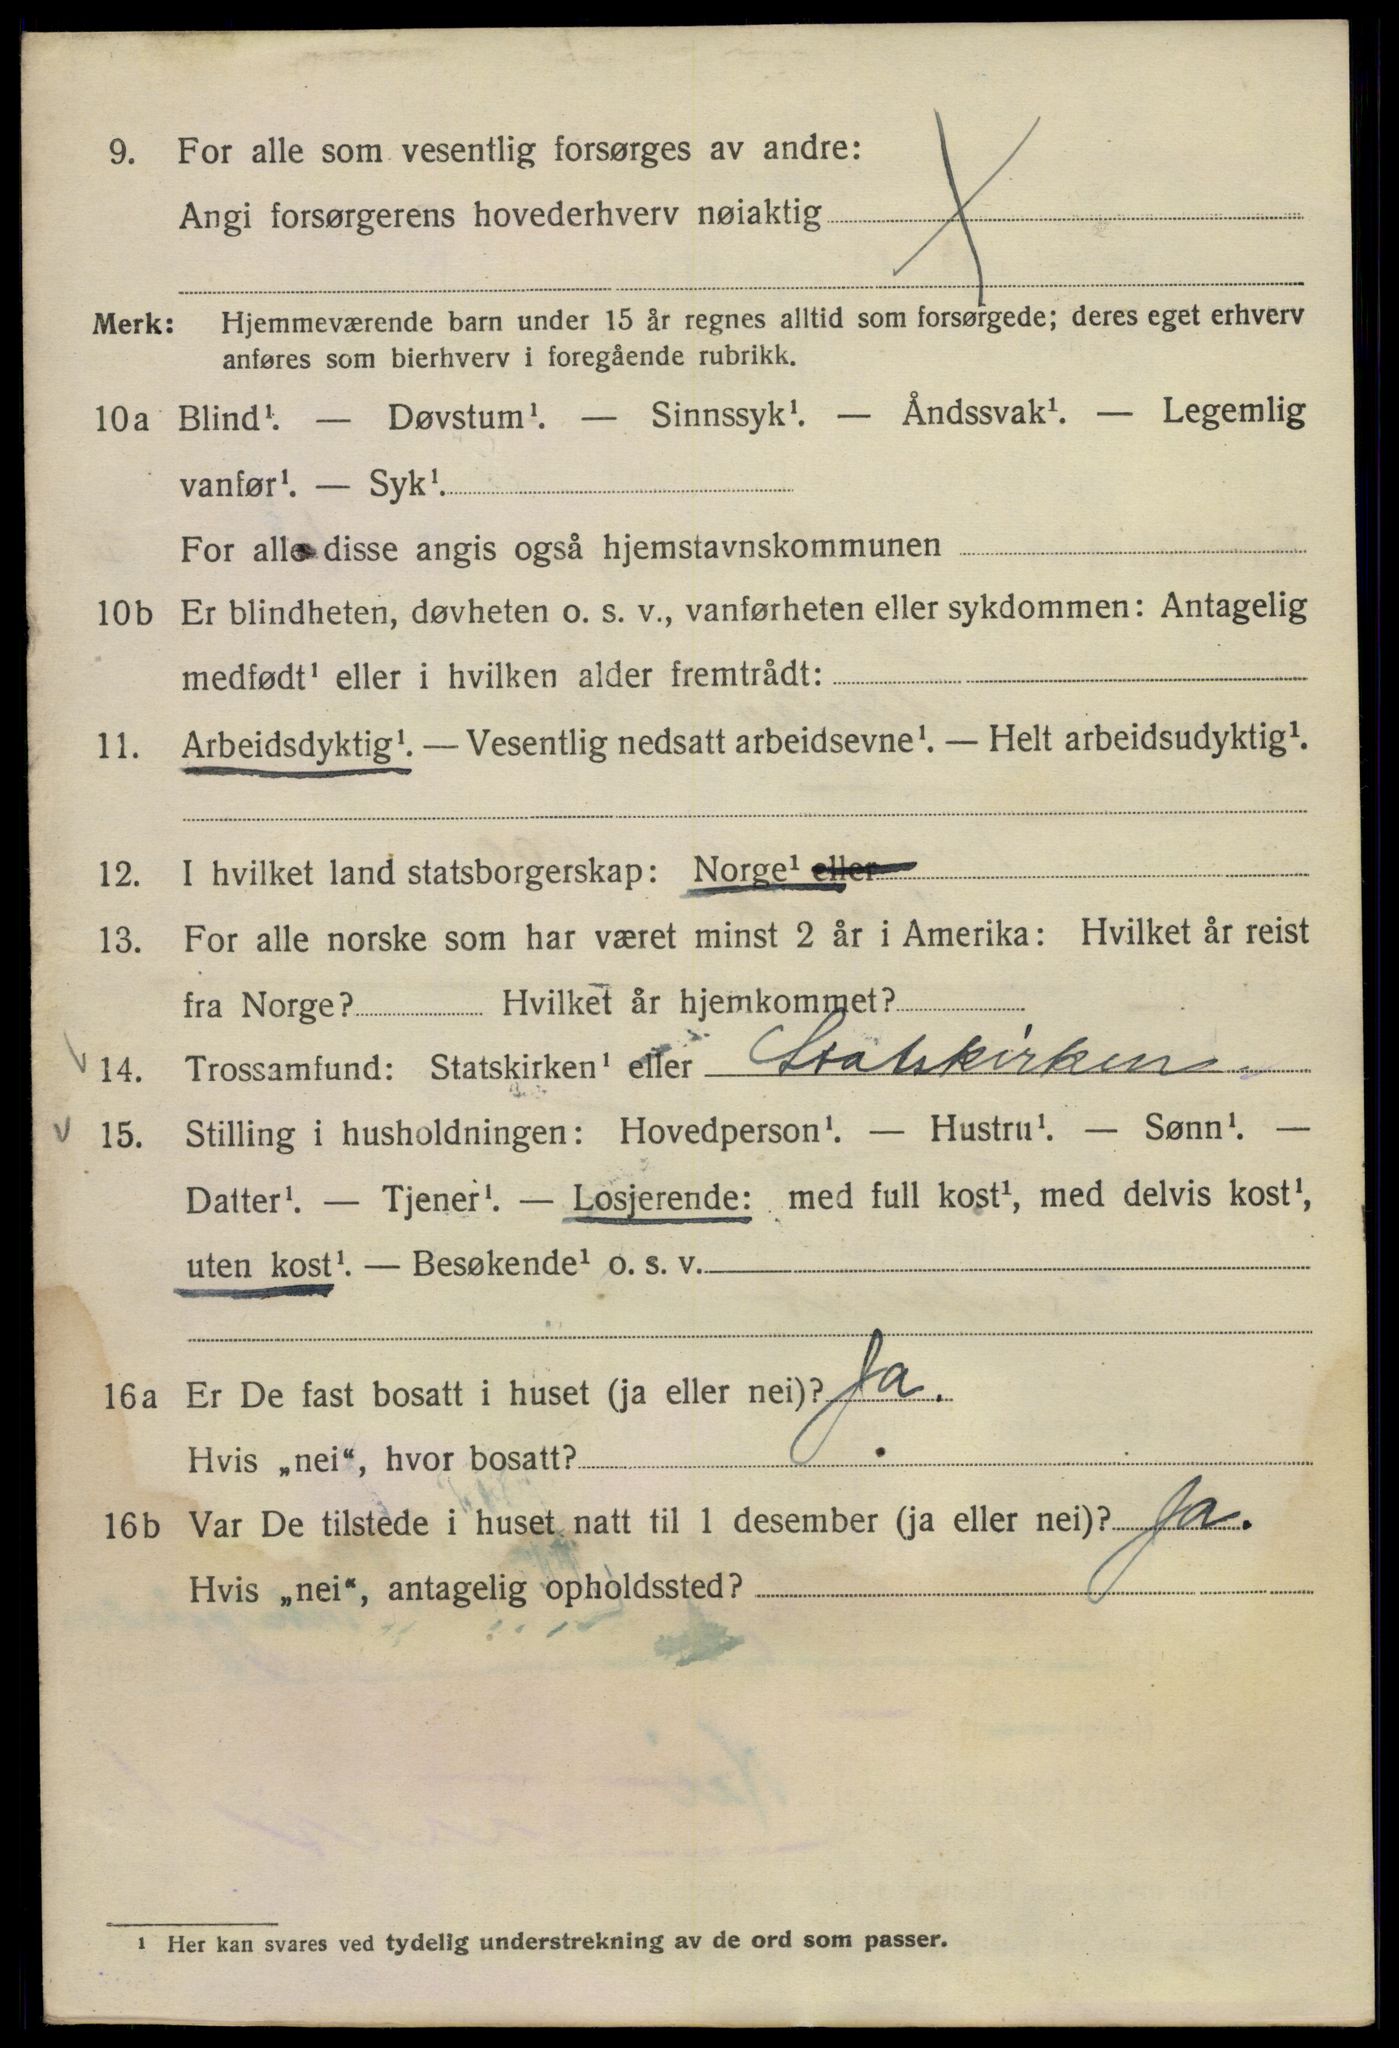 9. For alle som vesentlig forsørges av andre:
Angi forsørgerens hovederhverv nøiaktig X
Merk: Hjemmeværende barn under 15 år regnes alltid som forsørgede; deres eget erhverv
anføres som bierhverv i foregående rubrikk.
10a Blind¹. — Døvstum¹. — Sinnssyk¹. — Åndssvak¹. — Legemlig
vanfør¹. — Syk¹.
For alle disse angis også hjemstavnskommunen
10b Er blindheten, døvheten o. s. v., vanførheten eller sykdommen: Antagelig
medfødt¹ eller i hvilken alder fremtrådt:
11. Arbeidsdyktig¹. — Vesentlig nedsatt arbeidsevne¹. — Helt arbeidsudyktig¹.
12. I hvilket land statsborgerskap: Norge¹ eller
13. For alle norske som har været minst 2 år i Amerika: Hvilket år reist
fra Norge? Hvilket år hjemkommet?
14. Trossamfund: Statskirken¹ eller Statskirken
15. Stilling i husholdningen: Hovedperson¹. — Hustru¹. — Sønn¹. —
Datter¹. — Tjener¹. — Losjerende: med full kost¹, med delvis kost¹,
uten kost¹. — Besøkende¹ o. s. v.
16a Er De fast bosatt i huset (ja eller nei)? Ja.
Hvis „nei“, hvor bosatt?
16b Var De tilstede i huset natt til 1 desember (ja eller nei)? Ja.
Hvis „nei“, antagelig opholdssted?
¹ Her kan svares ved tydelig understrekning av de ord som passer.